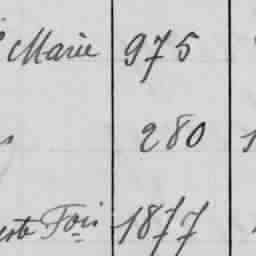 Marie 975
280
Fois 1877